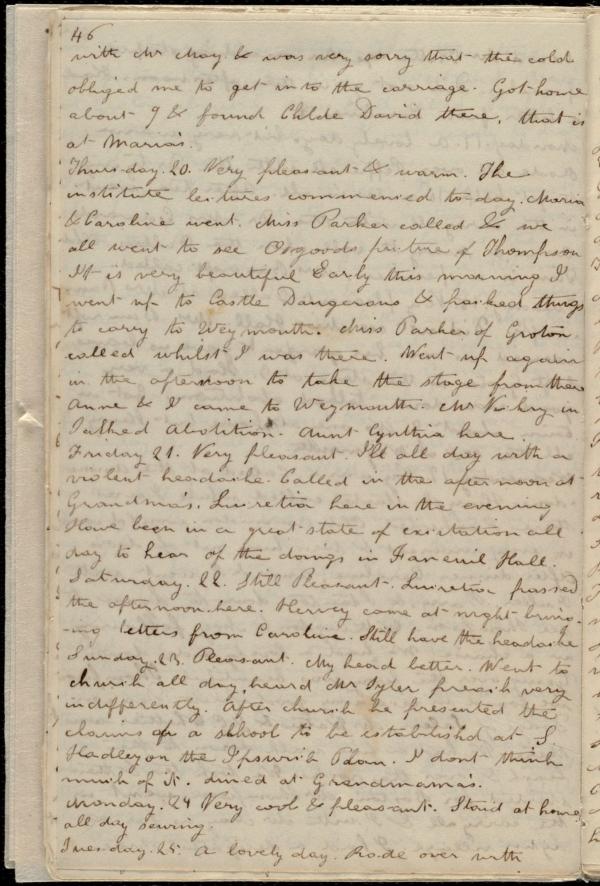 46
with Mr May & was very sorry that the cold
obliged me to get into the carriage. Got home
about 9 & found Childe David there, that is
at Maria's.
Thursday. 20. Very pleasant & warm. The
institute lectures commenced to-day. Maria
& Caroline went. Miss Parker called & we
all went to see Osgoods picture of Thompson
It is very beautiful Early this morning I
went up to Castle Dangerous & packed things
to carry to Weymouth. Miss Parker of Groton
called whilst I was there. Went up again
in the afternoon to take the stage from there
Anne & I came to Weymouth. Mr in
Talked Abolition. Aunt Cynthia here.
Friday 21. Very pleasant. Ill all day with a
violent headache. Called in the afternoon at
Grandma's. Lucretia here in the evening
Have been in a great state of excitation all
day to hear of the doings in Faneuil Hall.
Saturday. 22. Still Pleasant. Lucretia passed
the afternoon here. Hervey came at night bring-
-ing letters from Caroline. Still have the headache
Sunday. 23. Pleasant. My head better. Went to
church all day, heard Mr Tyler preach very
indifferently. After church he presented the
claims of a school to be established at S
Hadley on the Ipswich Plan. I dont think
much of it. dined at Grandmama's.
Monday. 24 Very cool & pleasant. Staid at home
all day sewing.
Tuesday. 25. A lovely day. Rode over with